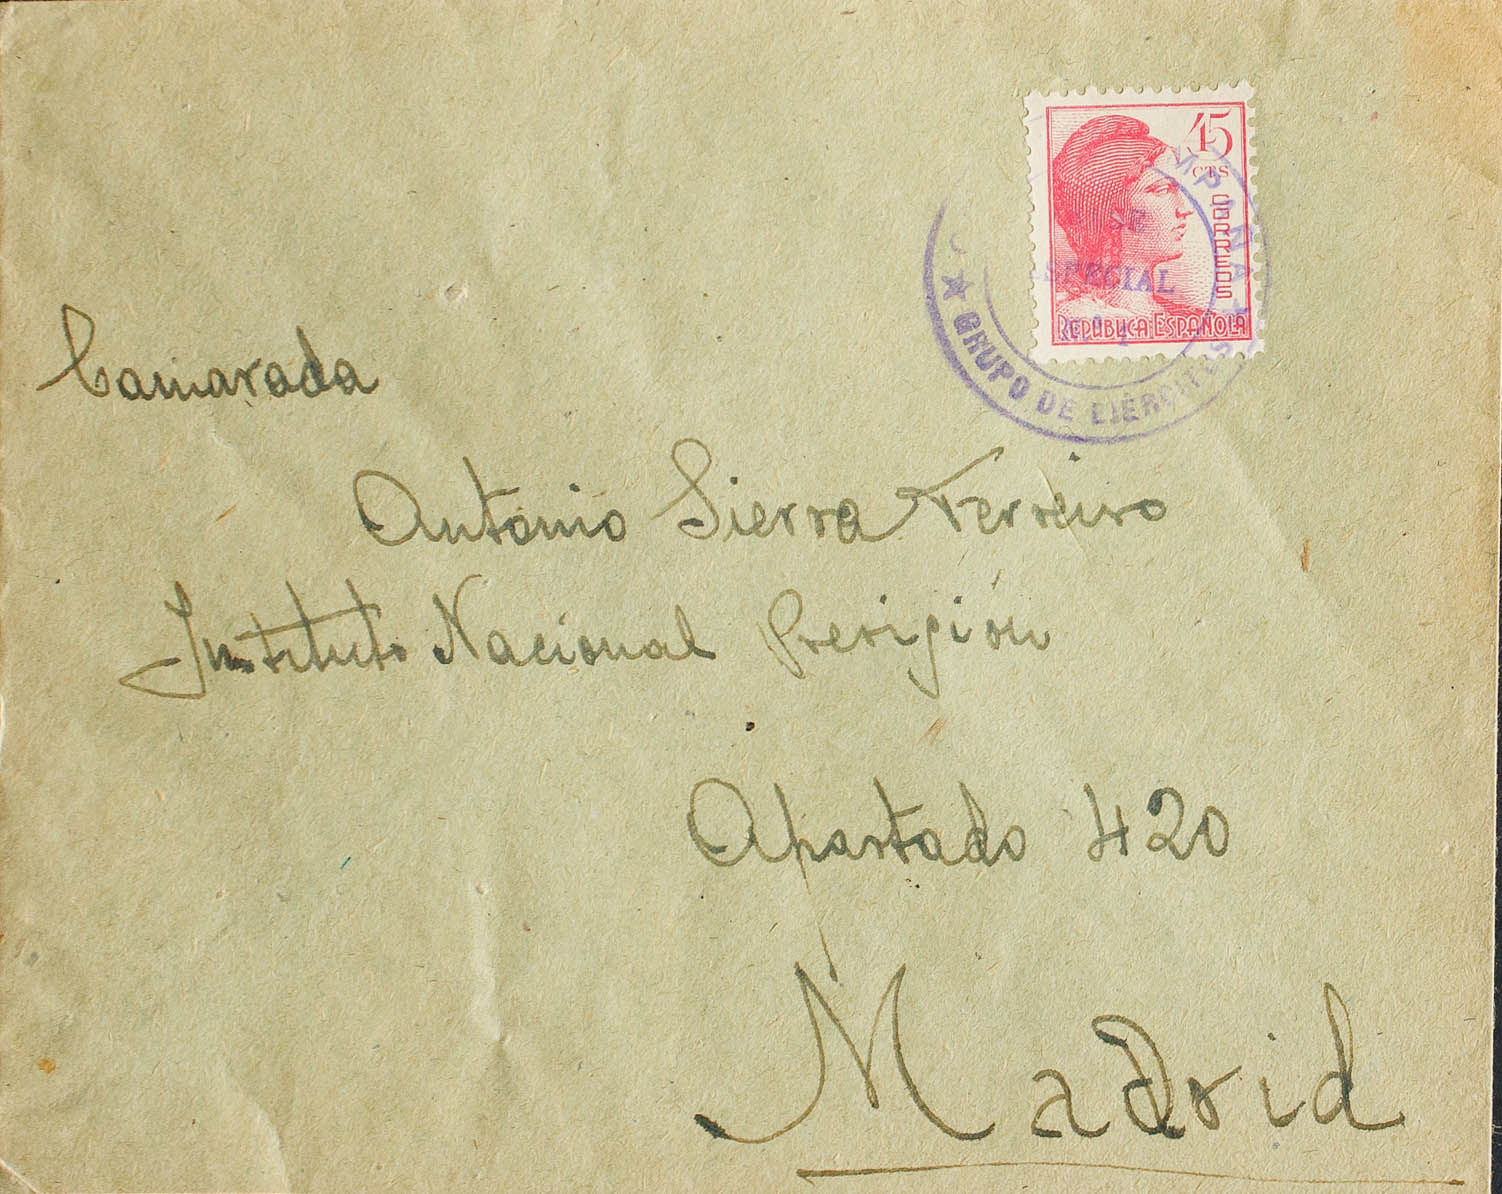 45
CTS
CORREOS
REPÚBLICA ESPAÑOLA
ESPECIAL
GRUPO DE EJÉRCITOS
Camarada
Antonio Sierra Ferreiro
Instituto Nacional Previsión
Apartado 420
Madrid